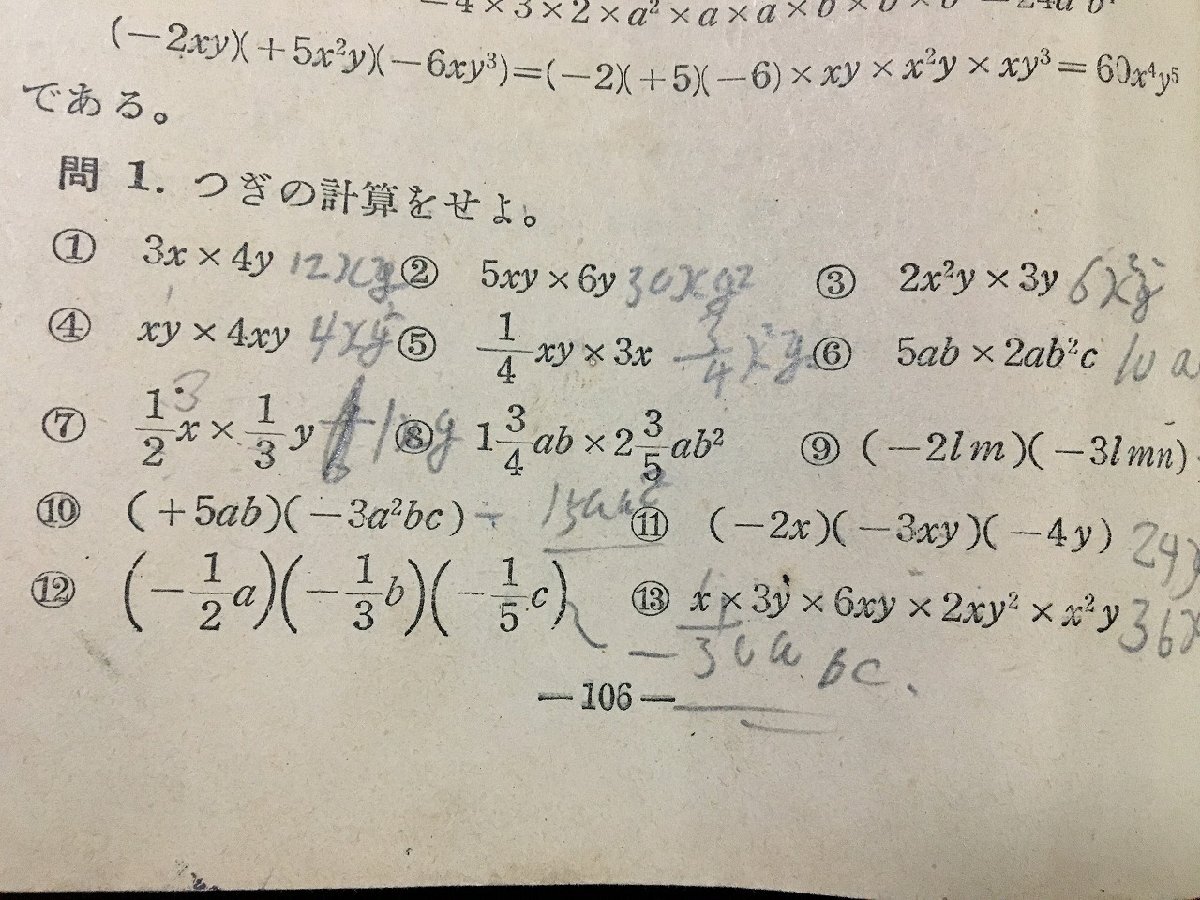 −4×3×2×a²×a×a×b×b×b
(−2xy)(+5x²y)(−6xy³)=(−2)(+5)(−6)×xy×x²y×xy³=60x⁴y⁵
である。
問 1. つぎの計算をせよ。
① 3x×4y 12xy ② 5xy×6y 30xy² ③ 2x²y×3y 6x²y²
④ xy×4xy 4xy² ⑤ 1/4 xy×3x 3/4 x²y ⑥ 5ab×2ab²c 10a
⑦ 1/2 x×1/3 y ⑧ 1 3/4 ab×2 3/5 ab² ⑨ (−2lm)(−3lmn)
⑩ (+5ab)(−3a²bc) − ⑪ (−2x)(−3xy)(−4y) 24
⑫ (−1/2 a)(−1/3 b)(−1/5 c) ⑬ x×3y×6xy×2xy²×x²y 36x
bc
—106—